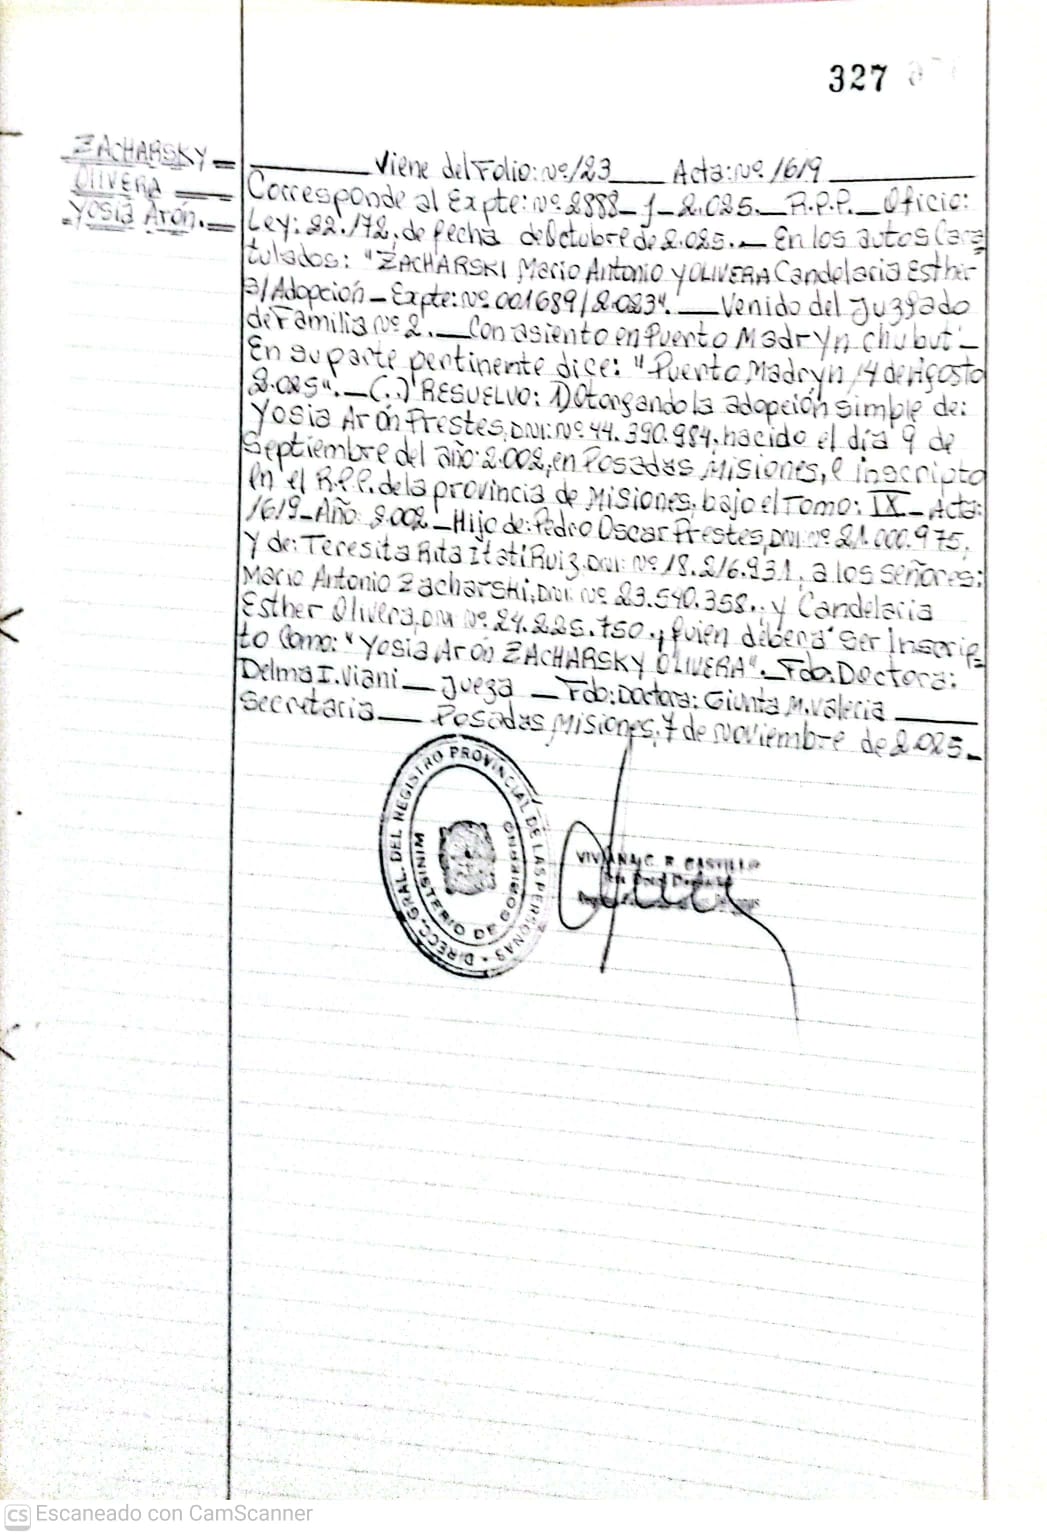 327
ZACHARSKY
OLIVERA
Yosia Arón.
Viene del Folio: nº 123 Acta: nº 1619
Corresponde al Expte: nº 2888-J-2.025. R.P.P. Oficio:
Ley: 22.172, de fecha de Octubre de 2.025. En los autos Cara
tulados: "ZACHARSKI Mario Antonio y OLIVERA Candelaria Esther
s/Adopción - Expte: nº 001689/2.023". Venido del Juzgado
de Familia nº 2. Con asiento en Puerto Madryn Chubut
En su parte pertinente dice: "Puerto Madryn, 14 de Agosto
2.025". (.) RESUELVO: 1) Otorgando la adopción simple de:
Yosia Arón Prestes, DNI: nº 44.390.984, nacido el día 9 de
Septiembre del año: 2.002, en Posadas Misiones, e inscripto
en el R.P.P. de la provincia de Misiones, bajo el Tomo: IX - Acta:
1619 - Año: 2.002 - Hijo de: Pedro Oscar Prestes, DNI: nº 21.000.975,
y de: Teresita Rita Itatí Ruiz, DNI: nº 18.216.931, a los señores:
Mario Antonio Zacharski, DNI: nº 23.540.358., y Candelaria
Esther Olivera, DNI nº 24.225.750., quien deberá ser Inscrip
to Como: "Yosia Arón ZACHARSKY OLIVERA". Fdo: Doctora:
Delma I. Viani - Jueza - Fdo: Doctora: Giunta M. Valeria
Secretaria - Posadas Misiones, 7 de Noviembre de 2.025.
DIRECC. GRAL. DEL REGISTRO PROVINCIAL DE LAS PERSONAS
MINISTERIO DE GOBIERNO
VIVIANA C. R. CASTILLO
CS Escaneado con CamScanner